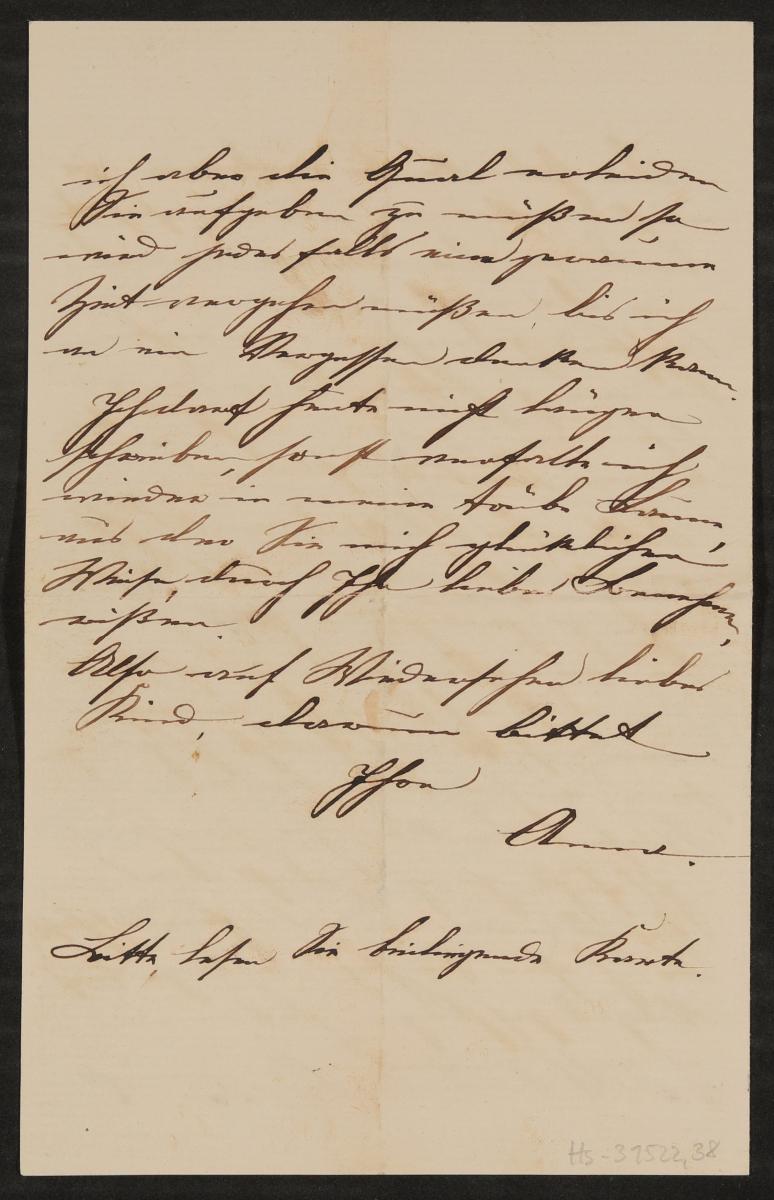 ich aber die Qual erleiden
Sie aufgeben zu müßen so
wird jedes falls eine geraume
Zeit vergehen müßen, bis ich
an ein Vergessen denken kann.
Ich darf heute nicht länger
schreiben, sonst verfalle ich
wieder in meine trübe Laune,
aus der Sie mich glücklicher
Weise, durch Ihr liebes Kommen,
rißen.
Also auf Wiedersehen liebes
Kind, darum bittet
Ihre
Anna.
Bitte, lesen Sie beiliegende Karte.
Hs-31522,38